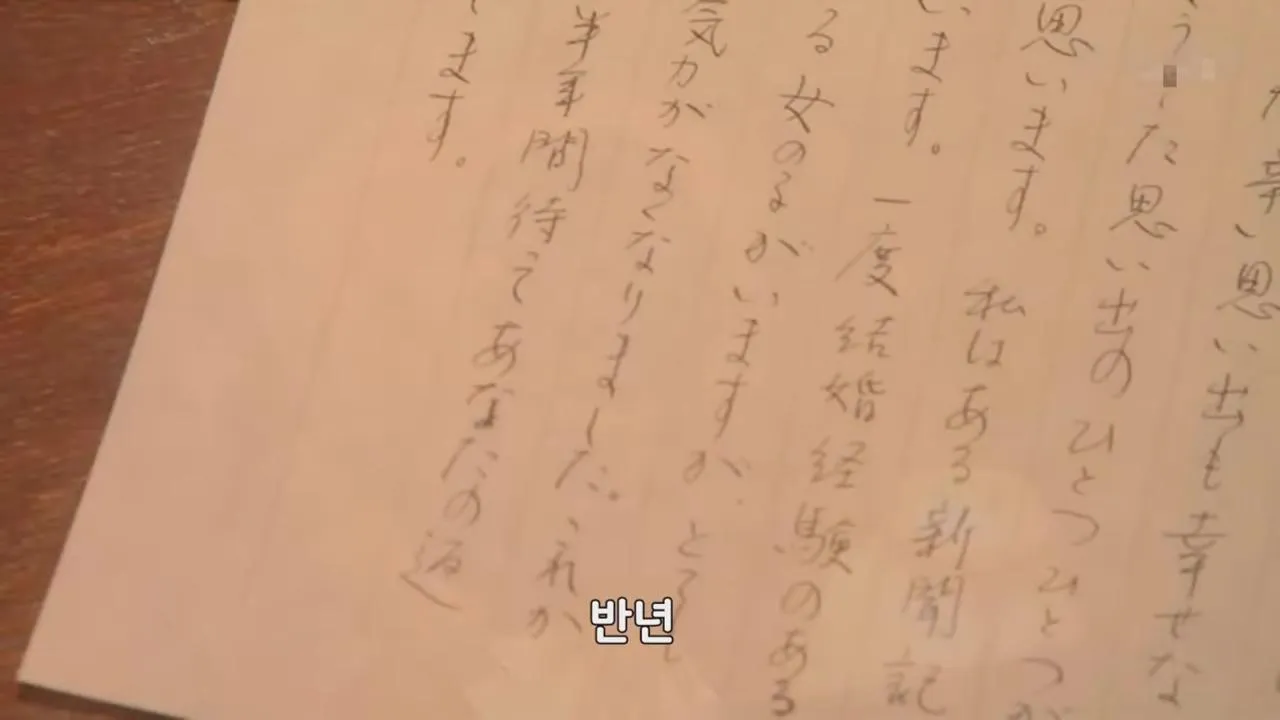 辛い思い出も幸せな
うした思い出のひとつひとつが
思います。 私はある新聞記
います。 一度結婚経験のある
る女の子がいますが、
気力がなくなりました。これか
半年間待ってあなたの返
ます。
반년